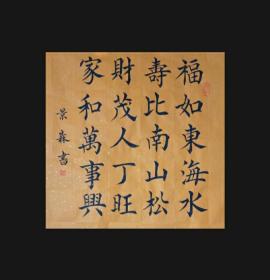 福如東海水
壽比南山松
財茂人丁旺
家和萬事興
景森書